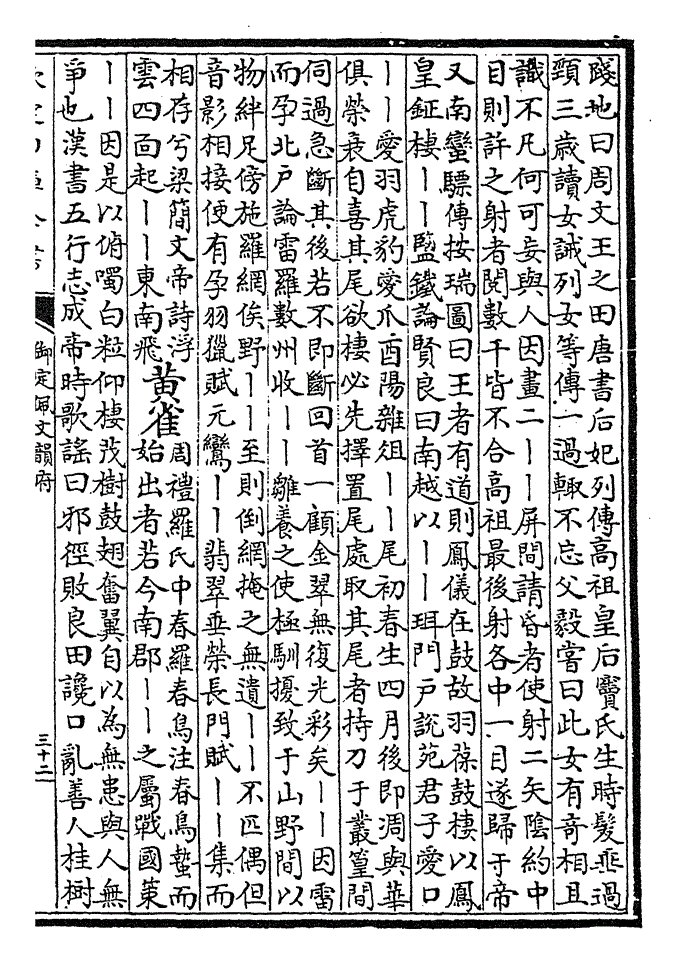 隧地曰周文王之田唐書后妃列傳高祖皇后竇氏生時髮垂過
頸三歲讀女誡列女等傳一過輒不忘父毅嘗曰此女有奇相且
識不凡何可妄與人因畫二丨丨屏間請昏者使射二矢陰約中
目則許之射者閱數千皆不合高祖最後射各中一目遂歸于帝
又南蠻驃傳按瑞圖曰王者有道則鳳儀在鼓故羽葆鼓棲以鳳
皇鉦棲丨丨鹽鐵論賢良曰南越以丨丨珥門戶說苑君子愛口
丨丨愛羽虎豹愛爪酉陽雜俎丨丨尾初春生四月後即凋與華
俱榮衰自喜其尾欲棲必先擇置尾處取其尾者持刀于叢篁間
伺過急斷其後若不即斷回首一顧金翠無復光彩矣丨丨因雷
而孕北戶論雷羅數州收丨丨雛養之使極馴擾致于山野間以
物絆足傍施羅網俟野丨丨至則倒網掩之無遺丨丨不匹偶但
音影相接便有孕羽獵賦元鸞丨丨翡翠垂榮長門賦丨丨集而
相存兮梁簡文帝詩浮
雲四面起丨丨東南飛
黄雀
周禮羅氏中春羅春鳥注春鳥蟄而
始出者若今南郡丨丨之屬戰國策
丨丨因是以俯噣白粒仰棲茂樹鼓翅奮翼自以為無患與人無
爭也漢書五行志成帝時歌謠曰邪徑敗良田讒口亂善人桂樹
御定佩文韻府
三十二